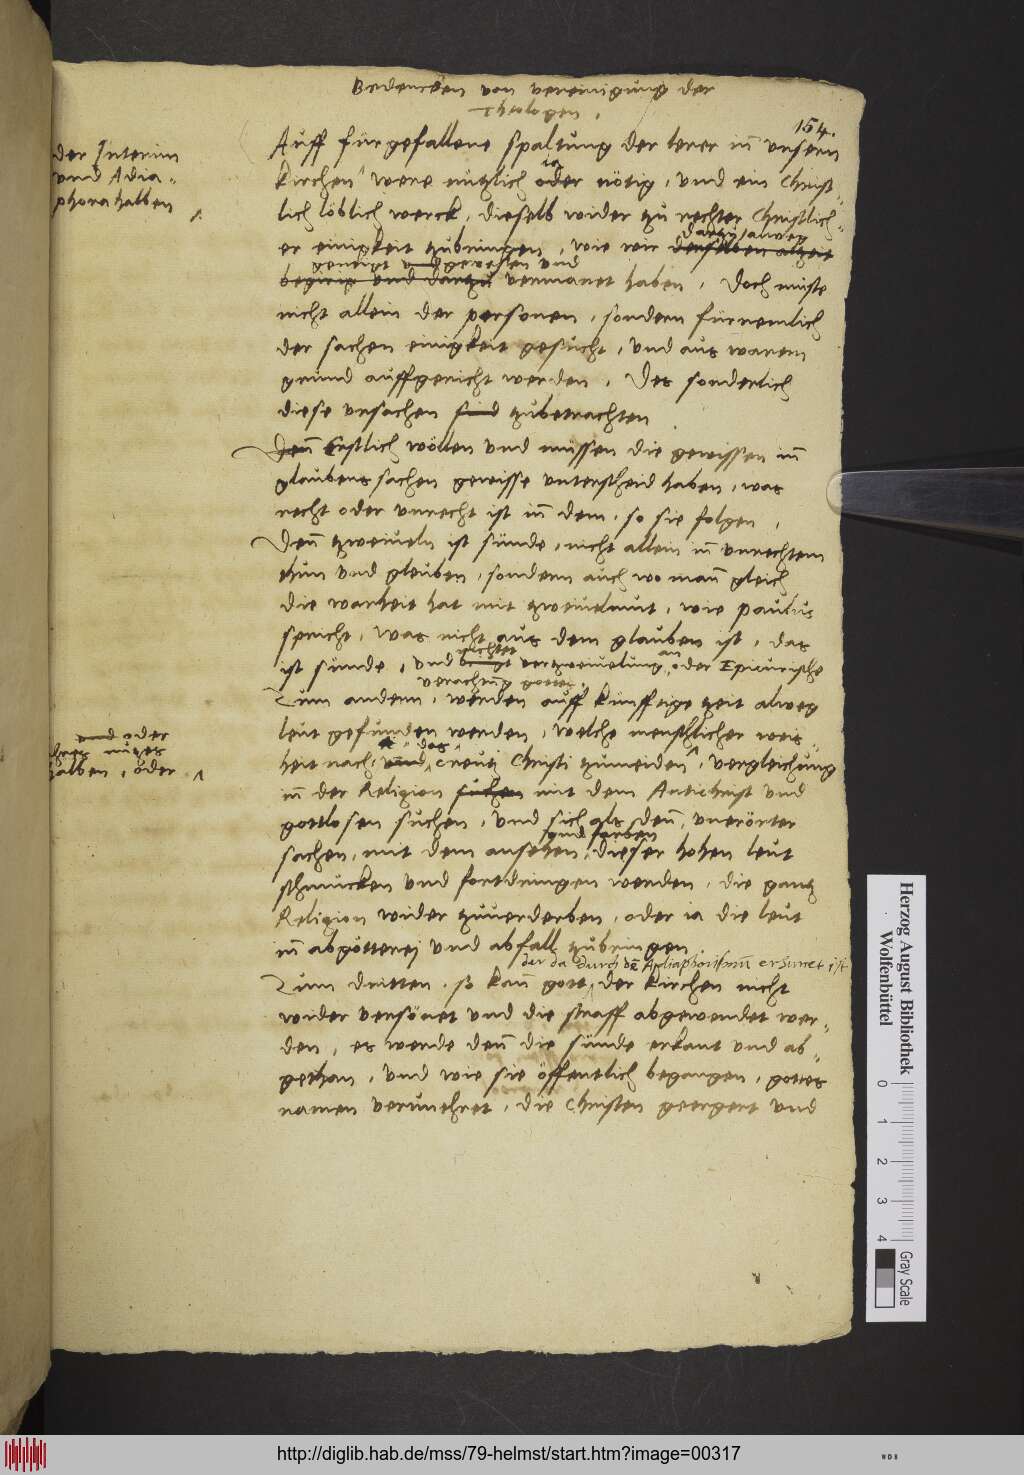 Bedencken von vereinigung der
Theologen.
154.
der Interim
vnd Adia-
phora halben
Auff fürgefallene spaltung der lerer in̄ vnsern
kirchen were nützlich oder nötig, vnd ein Christ-
ia
lich löblich werck, dieselb wider zu rechter Christlich-
er einigkeit zubringen, wie wir denselben altzeit
dartzu alweg
geneigt vnd gewesen vnd
begirig vnd dartzu vermanet haben. Doch müste
nicht allein der personen, sondern fürnemlich
der sachen einigkeit gesucht, vnd aus warem
grund auffgericht werden. Des sonderlich
diese vrsachen sind zubetrachten
Den̄ Erstlich wöllen vnd müssen die gewissen in̄
glaubens sachen gewisse vnterscheid haben, was
recht oder vnrecht ist in̄ dem, so sie folgen,
Den̄ zweiueln ist sünde, nicht allein in̄ vnrechtem
thun vnd gleuben, sondern auch wo man̄ gleich
die warheit hat mit zweiuelmut, wie paulus
spricht, Was nicht aus dem glauben ist, das
ist sünde, vnd bringt vertzweiuelung oder Epicurische
richtet
an
verachtūg gottes.
Zum andern, werden auff künfftige zeit alweg
leut gefunden werden, welche menschlicher weis-
heit nach, vnd creutz Christi zumeiden, vergleichung
das
vnd oder
ihres nutzes
halben, oder
in̄ der Religion suchen mit dem Antichrist vnd
gottlosen suchen, vnd sich als den̄, vnerörter
sachen, mit dem ansehen, dieser hohen leut
vnd farben
schmucken vnd fortdringen werden, die gantz
Religion wider zuuerderben, oder ia die leut
in̄ abgötterej vnd abfall zubringen.
der da durch dē Adiaphorismū erzurnet ist
Zum dritten, so kan̄ gott, der kirchen nicht
wider versönet vnd die straff abgewendet wer-
den, es werde den̄ die sünde erkant vnd ab-
gethan, vnd wie sie öffentlich begangen, gottes
namen verunehret, die Christen geergert vnd
Herzog August Bibliothek
Wolfenbüttel
0 1 2 3 4
Gray Scale
http://diglib.hab.de/mss/79-helmst/start.htm?image=00317